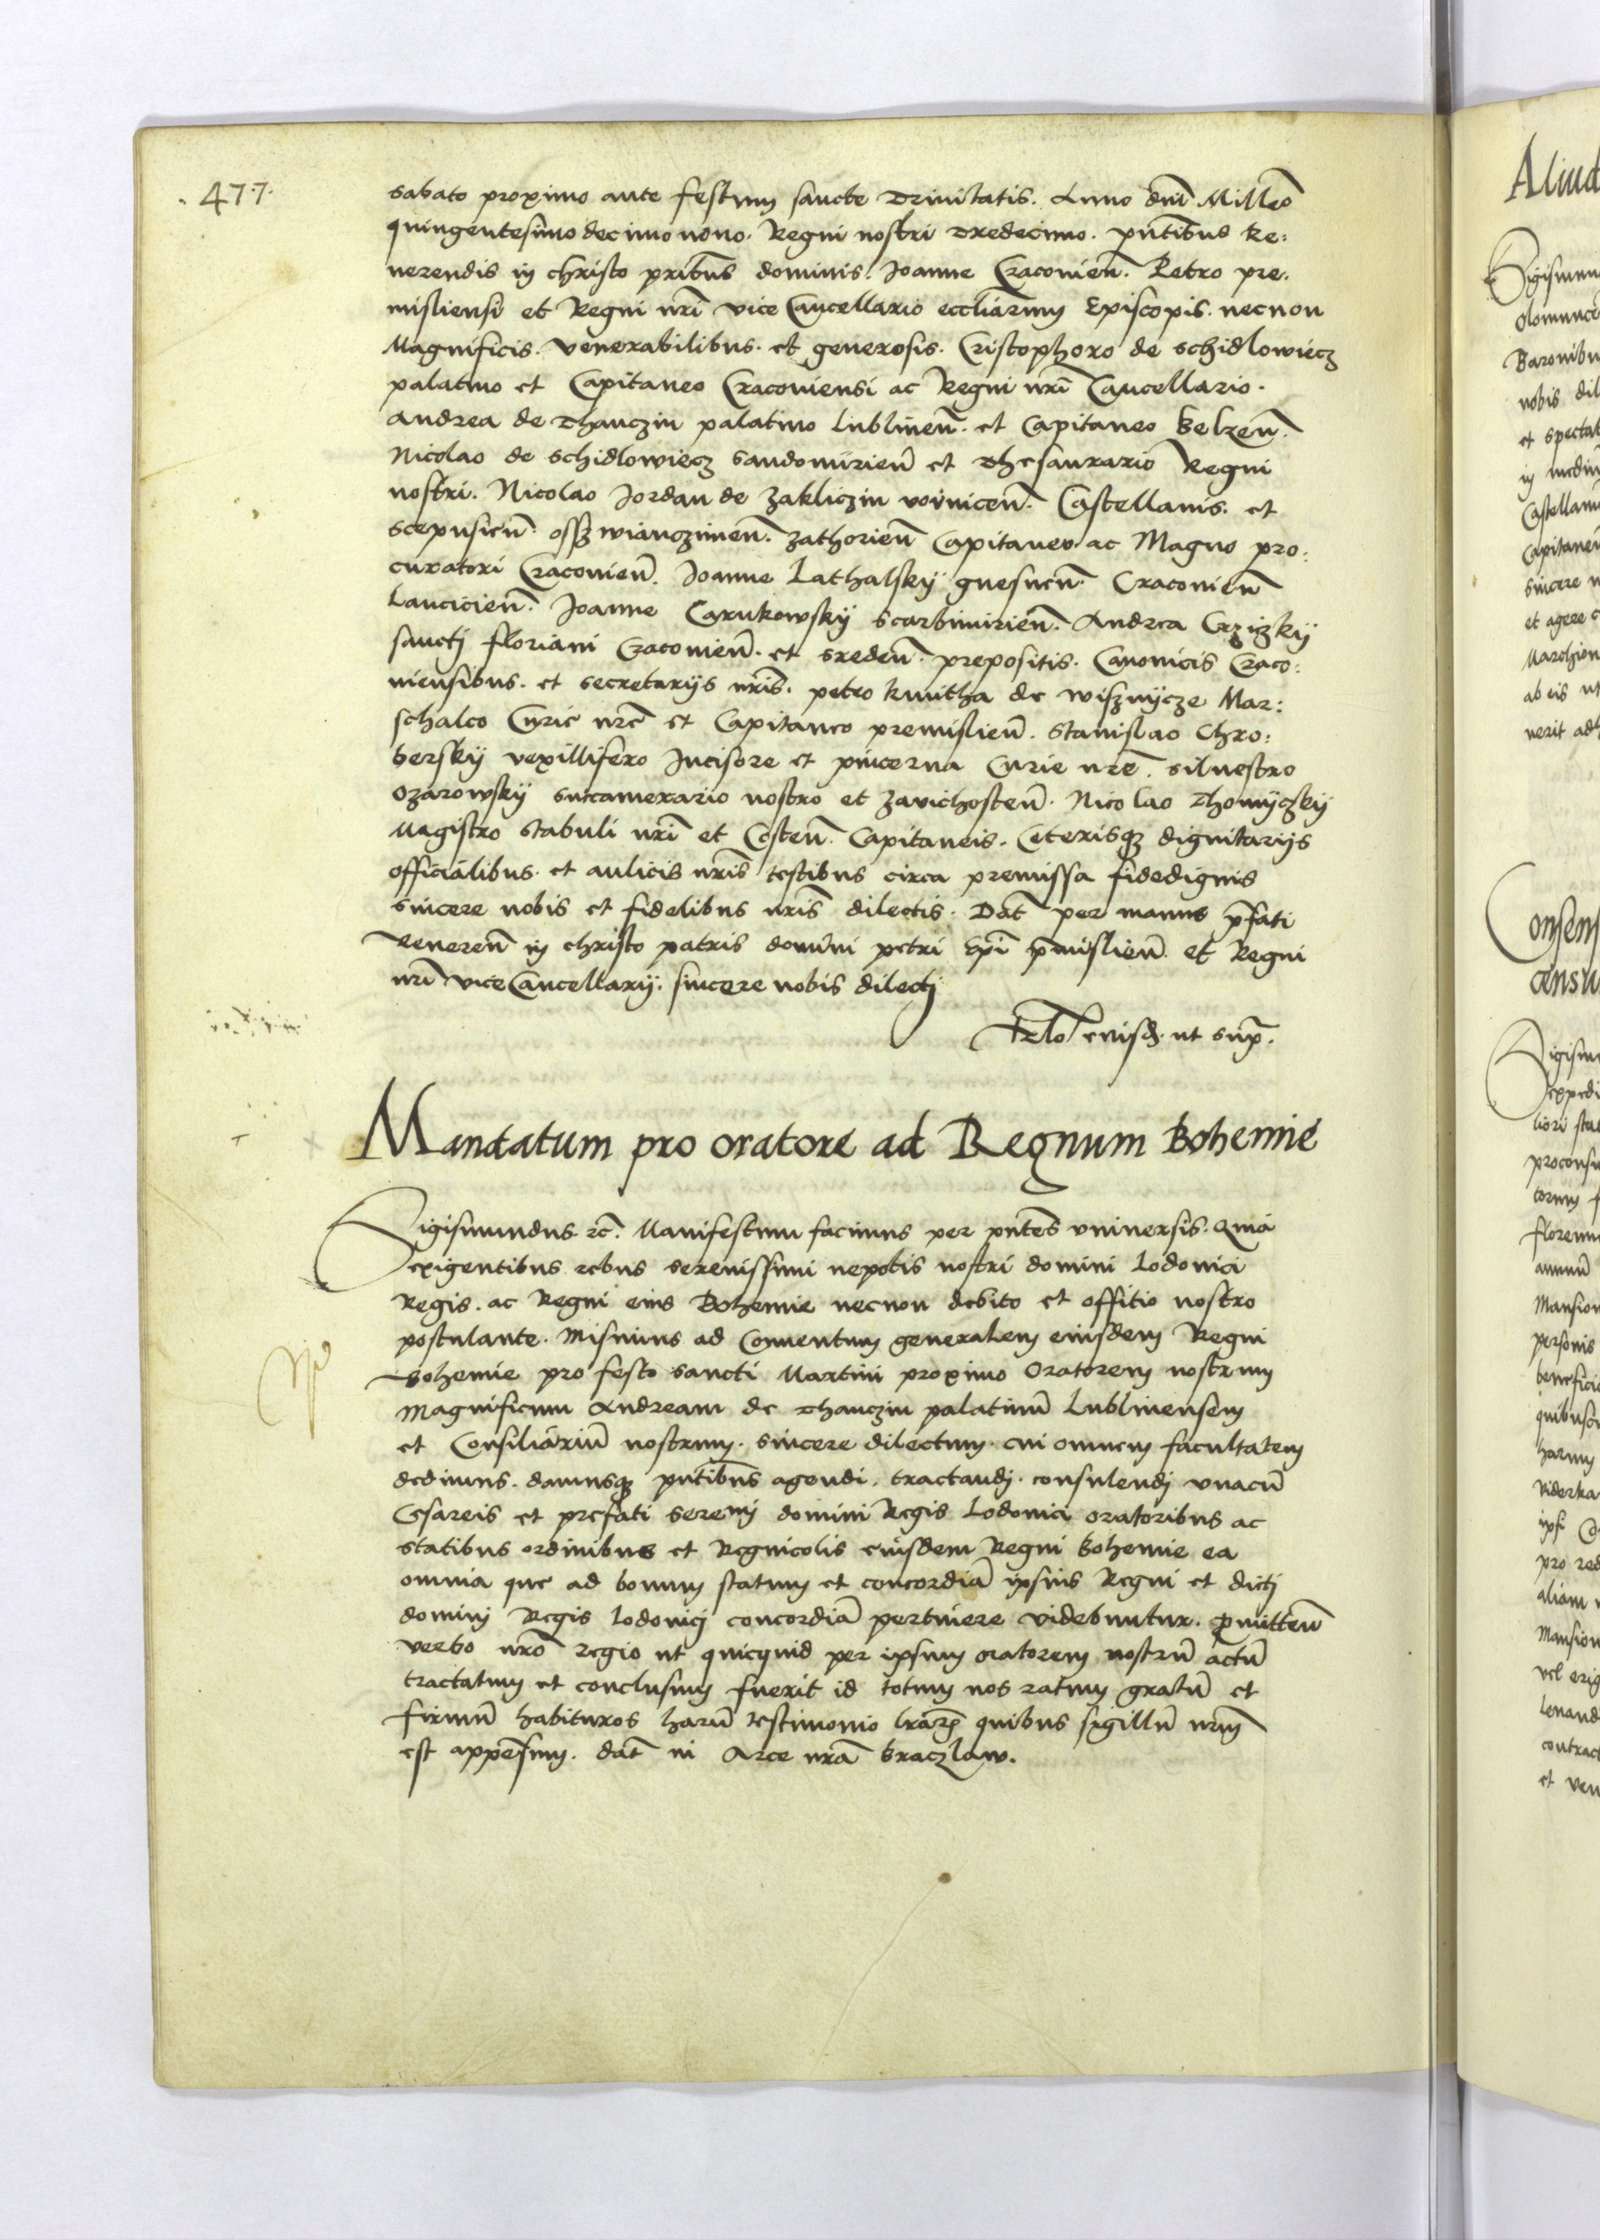 . 477.
sabato proximo ante festum sancte Trinitatis. Anno dñi Milleõ
quingentesimo decimo nono. Regni nostri Tredecimo. pñtibus Re:
uerendis in christo pribus dominis. Joanne Cracovieñ. Petro pre:
misliensi et Regni nri vice Cancellario eccliarum Episcopis. necnon
Magnificis. Venerabilibus. et generosis. Cristophoro de Schidlowiecz
palatino et Capitaneo Cracoviensi ac Regni nri Cancellario.
Andrea de Thanczin palatino Lublineñ. et Capitaneo Belzeñ.
Nicolao de Schidlowiecz Sandomirieñ et Thesaurario Regni
nostri. Nicolao Jordan de Zakliczin voiniceñ. Castellanis. et
Scepusieñ. Osszwianczimeñ. Zathorieñ Capitaneo. ac Magno pro:
curatori Cracovieñ. Joanne Lathalskij gnesneñ. Cracovieñ
Lancicieñ. Joanne Carnkowskij Scarbimirieñ. Andrea Crziczkij
sancti floriani Cracovieñ. et Sredeñ. prepositis. Canonicis Craco:
viensibus. et secretarijs nris. petro kmitha de wisznijcze Mar:
schalco Curie nre et Capitaneo premislieñ. Stanislao Chro:
berskij vexillifero Incisore et pincerna Curie nre. Silvestro
Ozarowskij succamerario nostro et Zavichosteñ. Nicolao Thomijczkij
Magistro stabuli nri et Costeñ Capitaneis. Ceterisq3 dignitarijs
officialibus. et aulicis nris testibus circa premissa fidedignis
sincere nobis et fidelibus nris dilectis. Dat per manus pfati
Reuereñ in christo patris domini petri Epi pmislieñ et Regni
nri vice Cancellarij. sincere nobis dilecti
Rlõ eiusd. ut sup.
Mandatum pro oratore ad Regnum Bohemie
Sigismundus rc̃. Manifestum facimus per pñtes vniuersis. Quia
exigentibus rebus serenissimi nepotis nostri domini Lodouici
Regis. ac Regni eius Bohemie necnon debito et offitio nostro
postulante. Misimus ad Conuentum generalem eiusdem Regni
Bohemie pro festo sancti Martini proximo Oratorem nostrum
Magnificum Andream de Thanczin palatinũ Lublinensem
et Consiliariũ nostrum. sincere dilectum. cui omnem facultatem
dedimus. damusq3 pñtibus agendi. tractandi. consulendi vnacũ
Cesareis et prefati seremi domini Regis Lodouici oratoribus ac
statibus ordinibus et Regnicolis eiusdem Regni bohemie ea
omnia que ad bonum statum et concordiã ipsius Regni et dicti
domini Regis lodouici concordiã pertinere videbuntur. pmitteñ
verbo nro regio ut quicquid per ipsum oratorem nostrũ actũ
tractatum et conclusum fuerit id totum nos ratum gratũ et
firmũ habituros harũ testimonio lrar̃ quibus sigillũ nrm
est appẽsum. dat in Arce nrã braczlaw.